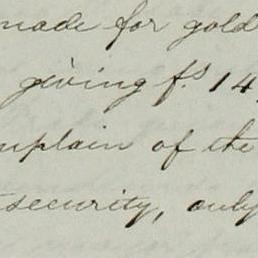 made for gold
giving f.s 14
mplain of the
security, only